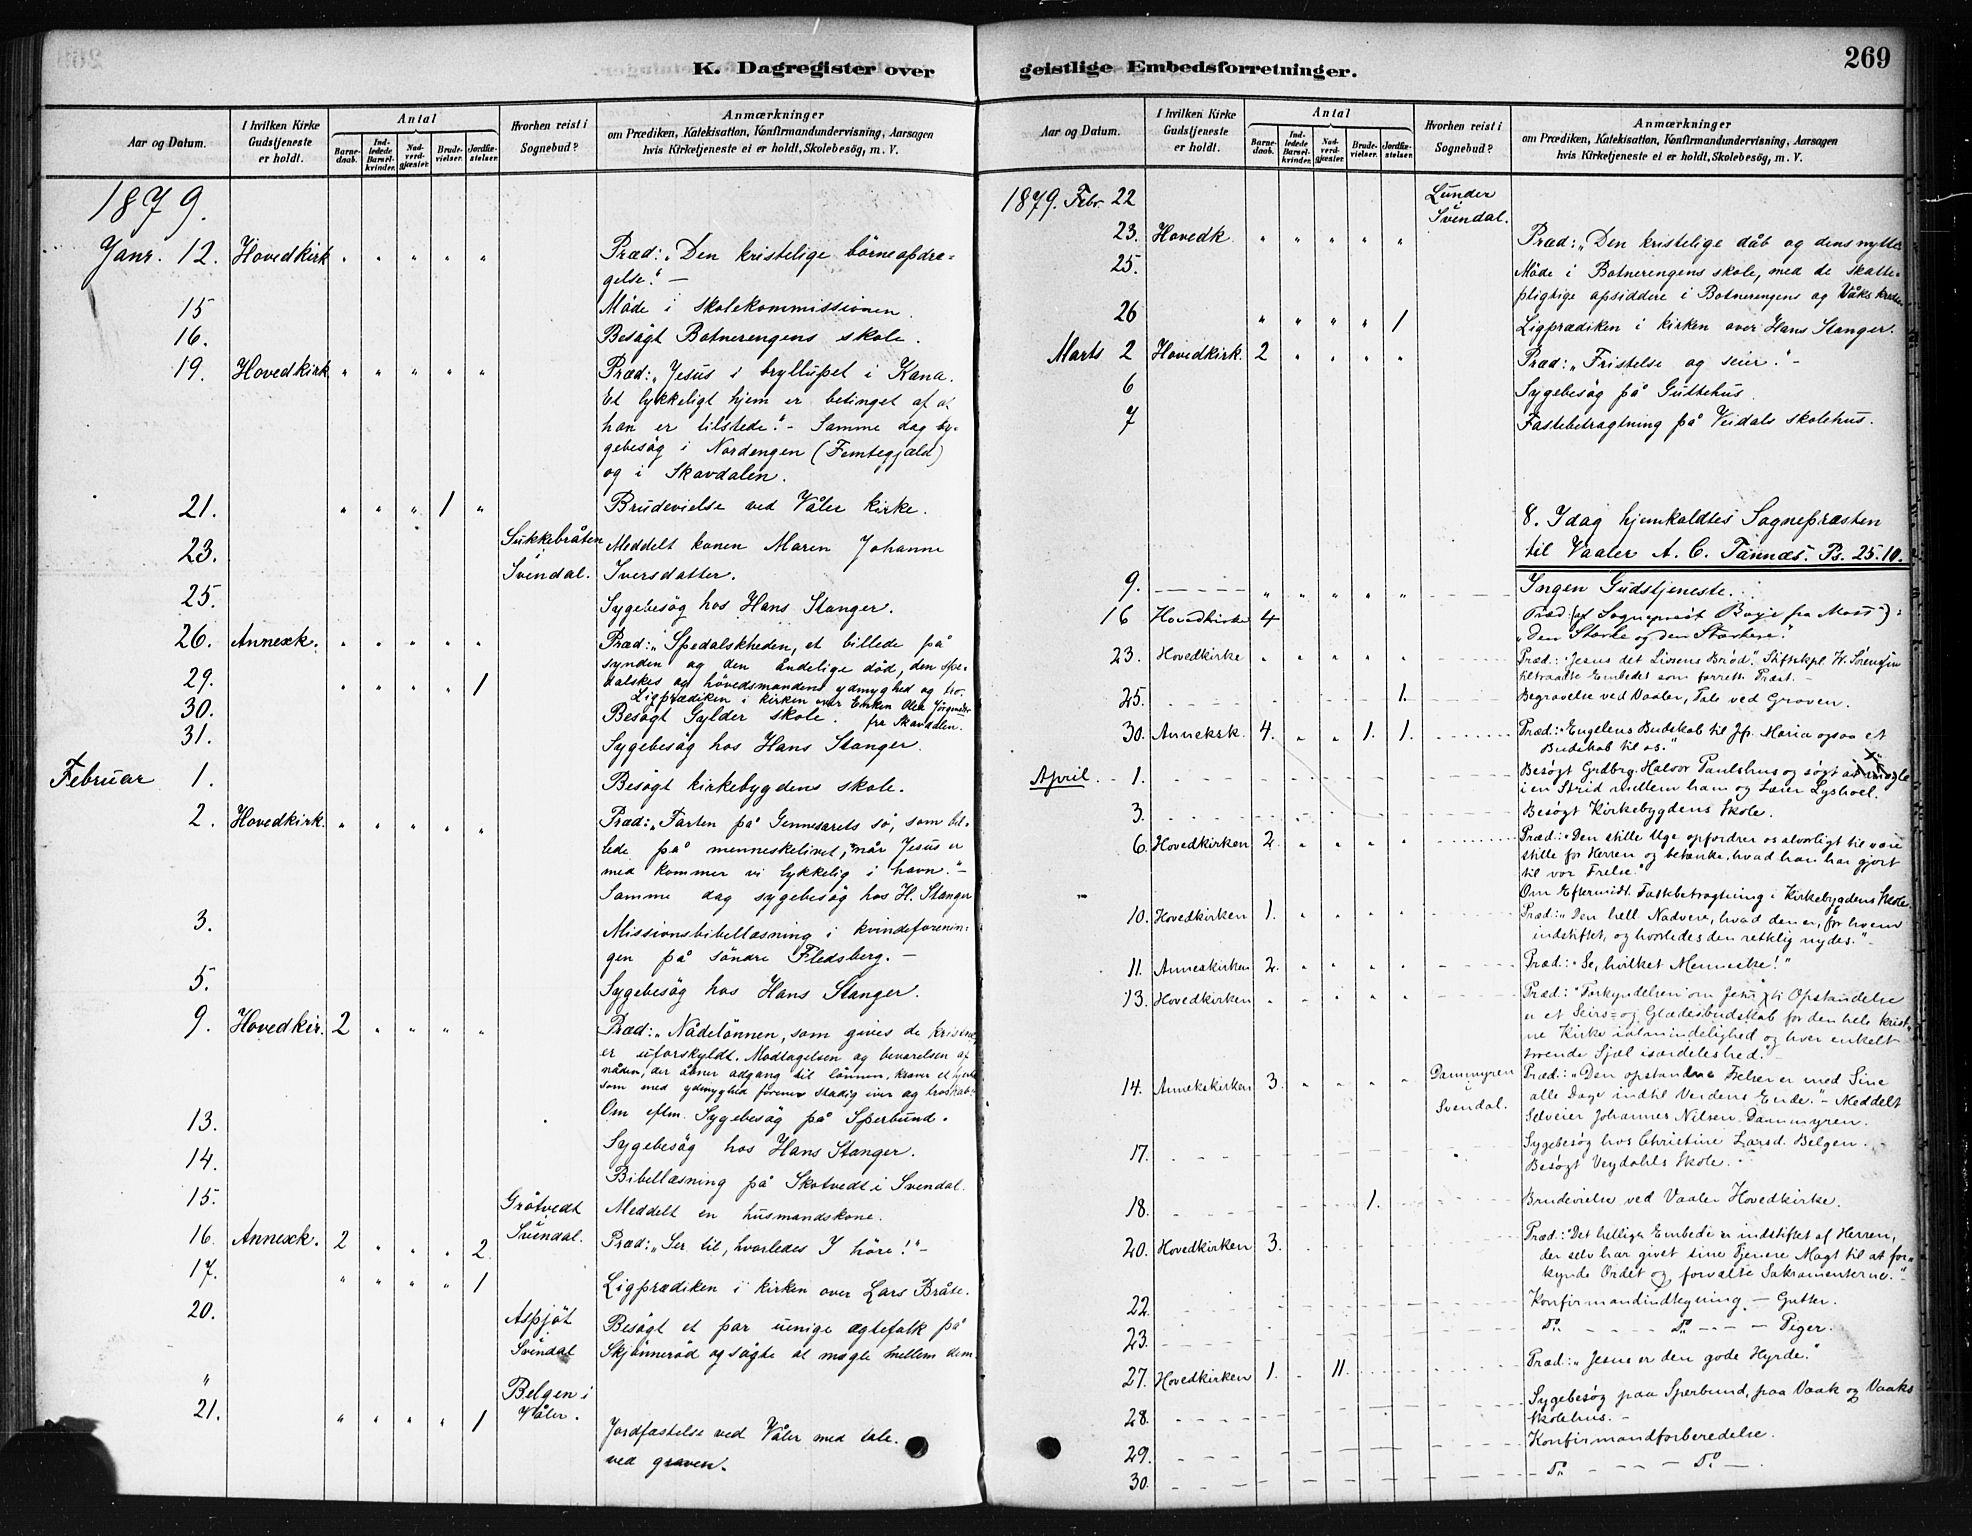 K. Dagregister over
Aar og Datum.
I hvilken Kirke Gudstjeneste er holdt.
Antal
Barnedaab.
Indledede Barselkvinder.
Nadverdgjæster.
Brudevielser.
Jordfæstelser.
Hvorhen reist i Sognebud?
Anmærkninger
om Prædiken, Katekisation, Konfirmandundervisning, Aarsagen
hvis Kirketjeneste ei er holdt, Skolebesøg, m. V.
1879.
Janr. 12. Hovedkirk " " " " " Præd: „Den kristelige börneopdra=
gelse." —
15 Möde i skolekommissionen.
16. Besögt Botnerengens skole.
19. Hovedkirk " " " " " Præd: „Jesus i bryllupet i Kana.
Et lykkeligt hjem er betinget af at
han er tilstede." - Samme dag sy-
gebesög i Nordengen (Femtegjæld)
og i Skavdalen.
21. " " " 1 " Brudevielse ved Våler kirke.
23. Sukkebråten Meddelt konen Maren Johanne
Svendal. Iversdatter.
25. Sygebesög hos Hans Stanger.
26. Annexk. " " " " " Præd: „Spedalskheden, et billede på
synden og den åndelige död, den spe-
dalskes og hövedsmandens ydmyghed og tro.
29. " " " " 1 Ligprædiken i kirken over Enken Olea
30. Besögt Gylder skole. fra Skavdalen.
31. Sygebesög hos Hans Stanger.
Februar 1. Besögt kirkebygdens skole.
2. Hovedkirk. " " " " " Præd: „Farten på Gennesarets sö, som bil-
lede på menneskelivet, når Jesus er
med kommer vi lykkelig i havn." -
Samme dag sygebesög hos H. Stanger
3. Missionsbibellæsning i kvindeforenin-
gen på söndre Fledsberg. —
5. Sygebesög hos Hans Stanger.
9. Hovedkir. 2 " " " " Præd: „Nådelönnen, som gives de kristne,
er uforskyldt. Modtagelsen og bevarelsen af
nåden, der åbner adgang til lönnen, kræver et
som med ydmyghed forener stadig iver og troskab."
Om eftm. Sygebesög på Sperbund.
13. Sygebesög hos Hans Stanger.
14. Bibellæsning på Skotvedt i Svendal.
15. Gråtvedt Meddelt en husmandskone.
Svendal.
16. Annexk. 2 " " " 2. Præd: „Ser til, hvorledes I höre!" -
17. " " " " 1 Ligprædiken i kirken over Lars Bråte.
20. Aspjöt Besögt et par uenige ægtefolk på
Svendal Skjönneröd og sögte at mægle mellem dem.
" Belgen i
Våler.
21. " " " " 1 Jordfæstelse ved Våler med tale
ved graven.
269
geistlige Embedsforretninger.
Aar og Datum.
I hvilken Kirke Gudstjeneste er holdt.
Antal
Barnedaab.
Indledede Barselkvinder.
Nadverdgjæster.
Brudevielser.
Jordfæstelser.
Hvorhen reist i Sognebud?
Anmærkninger
om Prædiken, Katekisation, Konfirmandundervisning, Aarsagen
hvis Kirketjeneste ei er holdt, Skolebesøg, m. V.
1879. Febr. 22 Lunder
i Svendal.
23. Hovedk. " " " " " Præd: „Den kristelige dåb og dens nytte
25. Möde i Botnerengens skole, med de skatte-
pligtige opsiddere i Botnerengens og Våks
26 " " " " 1 Ligprædiken i kirken over Hans Stanger.
Marts 2 Hovedkirk. 2 " " " " Præd: „Fristelse og seier." -
6 Sygebesög på Guttehus.
7 Fastebetragtning på Veidals skolehus.
8. Idag hjemkaldtes Sognepræsten
til Vaaler A. C. Tannæs. Ps. 25.10.
9. " " " " " Ingen Gudstjeneste.
16 Hovedkirke 4 Præd (af Sognepræst fra Moss):
„Den Stærke og den Stærkere."
23. Hovedkirke " " " " " Præd: „Jesus det Livsens Brød." Stiftskpl. W. Sørensen
tiltraadte Embedet som forrett. Præst. -
25. 1. Begravelse ved Vaaler, Tale ved Graven.
30. Annekxk. 4. " " 1. 1. Præd: „Engelens Budskab til Jfr. Maria ogsaa et
Budskab til os."
April. 1. Besøgt Grdbrg. Halvor Paulshus og søgt at mægle
i en Strid mellem ham og Lærer Lyshoel.
3. Besøgt Kirkebygdens Skole.
6. Hovedkirken 2. " " " " Præd: „Den stille Uge opfordrer os alvorligt til være
stille for Herren og betænke, hvad han har gjort
til vor Frelse."
Om Eftermidt. Fastebetragtning i Kirkebygdens Skole.
10. Hovedkirken 1. " " " " Præd: „Den hell Nadvere, hvad den er, for hvem
indstiftet, og hvorledes den rettelig nydes." -
11. Annexkirken 2. " " " " Præd: „Se, hvilket Menneske!"
13. Hovedkirken " " " " " Præd: „Forkyndelsen om Jesu Opstandelse
er et Seirs= og Glædesbudskab for den hele krist-
ne Kirke i almindelighed og hver enkelt
troende Sjæl isærdeleshed." -
14. Annekskirken 3. " " " " Dammyren Præd: „Den opstandne Frelser er med Sine
i Svendal. alle Dage indtil Verdens Ende." - Meddelt
Selveier Johannes Nilsen Dammyren.
17. Sygebesøg hos Christine Larsd. Belgen.
Besøgt Veydahls Skole.
18. 1. Brudevielse ved Vaaler Hovedkirke.
20. Hovedkirken 3. Præd: „Det hellige Embede er indstiftet af Herren,
der selv har givet sine Tjenere Magt til at for-
kynde Ordet og forvalte Sakramenterne."
22. Konfirmandindtegning - Gutter.
23. Do. Do. - Piger.
27. Hovedkirken 1. 11. Præd: „Jesus er den gode Hyrde."
28. Sygebesøg paa Sperbund, paa Vaak og Vaaks
Skolehus. -
29. Konfirmandforberedelse.
30. Do. Do.